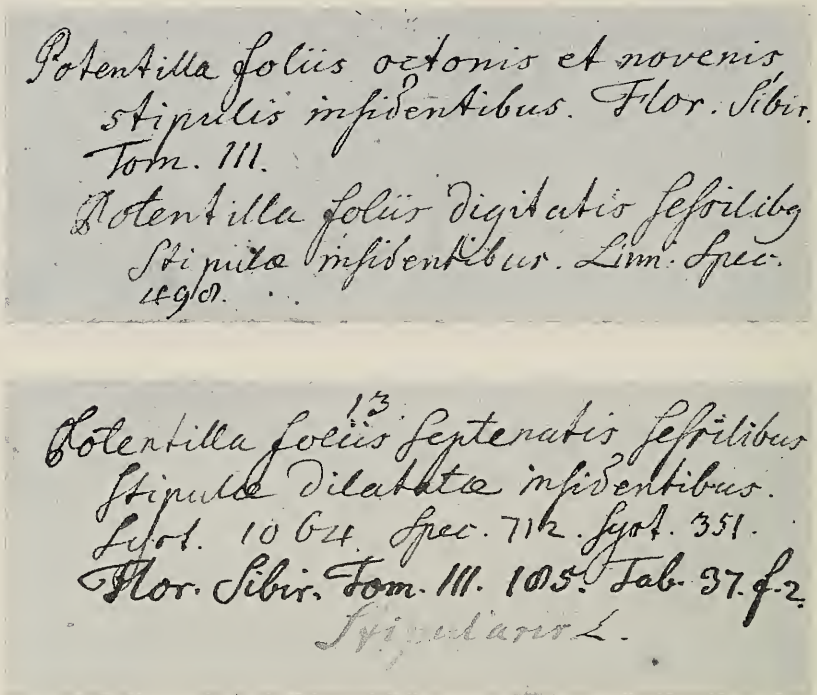 Potentilla foliis octonis et novenis,
stipulis insidentibus. Flor. Sibir.
Tom. III.
Potentilla foliis digitatis sessilibq
Stipulæ insidentibus. Linn. Spec.
498.
13.
Potentilla foliis septenatis sessilibus
stipulæ dilatatæ insidentibus.
Syst. 1064. Spec. 712. Syst. 351.
Flor. Sibir. Tom. III. 185. Tab. 37. f. 2.
Stipularis L.